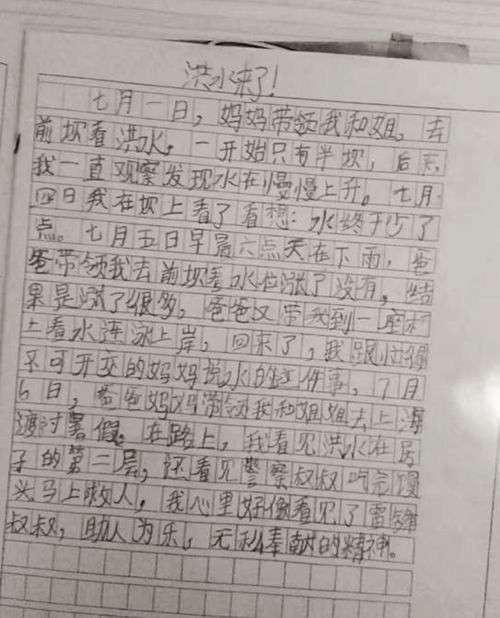 洪水来了!
七月一日，妈妈带领我和姐去
前坝看洪水，一开始只有半坝，后来
我一直观察发现水在慢慢上升。七月
四日我在坝上看了看想：水终于少了
点。七月五日早晨六点天在下雨，爸
爸带领我去前坝看水位涨了没有，结
果是涨了很多，爸爸又带我到一座桥
上看水连冰上岸，回来了，我跟忙得
不可开交的妈妈说水的这件事，7月
6日，爸爸妈妈带领我和姐姐去上海
渡过暑假。在路上，我看见洪水在房
子的第二层，还看见警察叔叔吃完馒
头马上救人，我心里好像看见了雷锋
叔叔，助人为乐，无私奉献的精神。